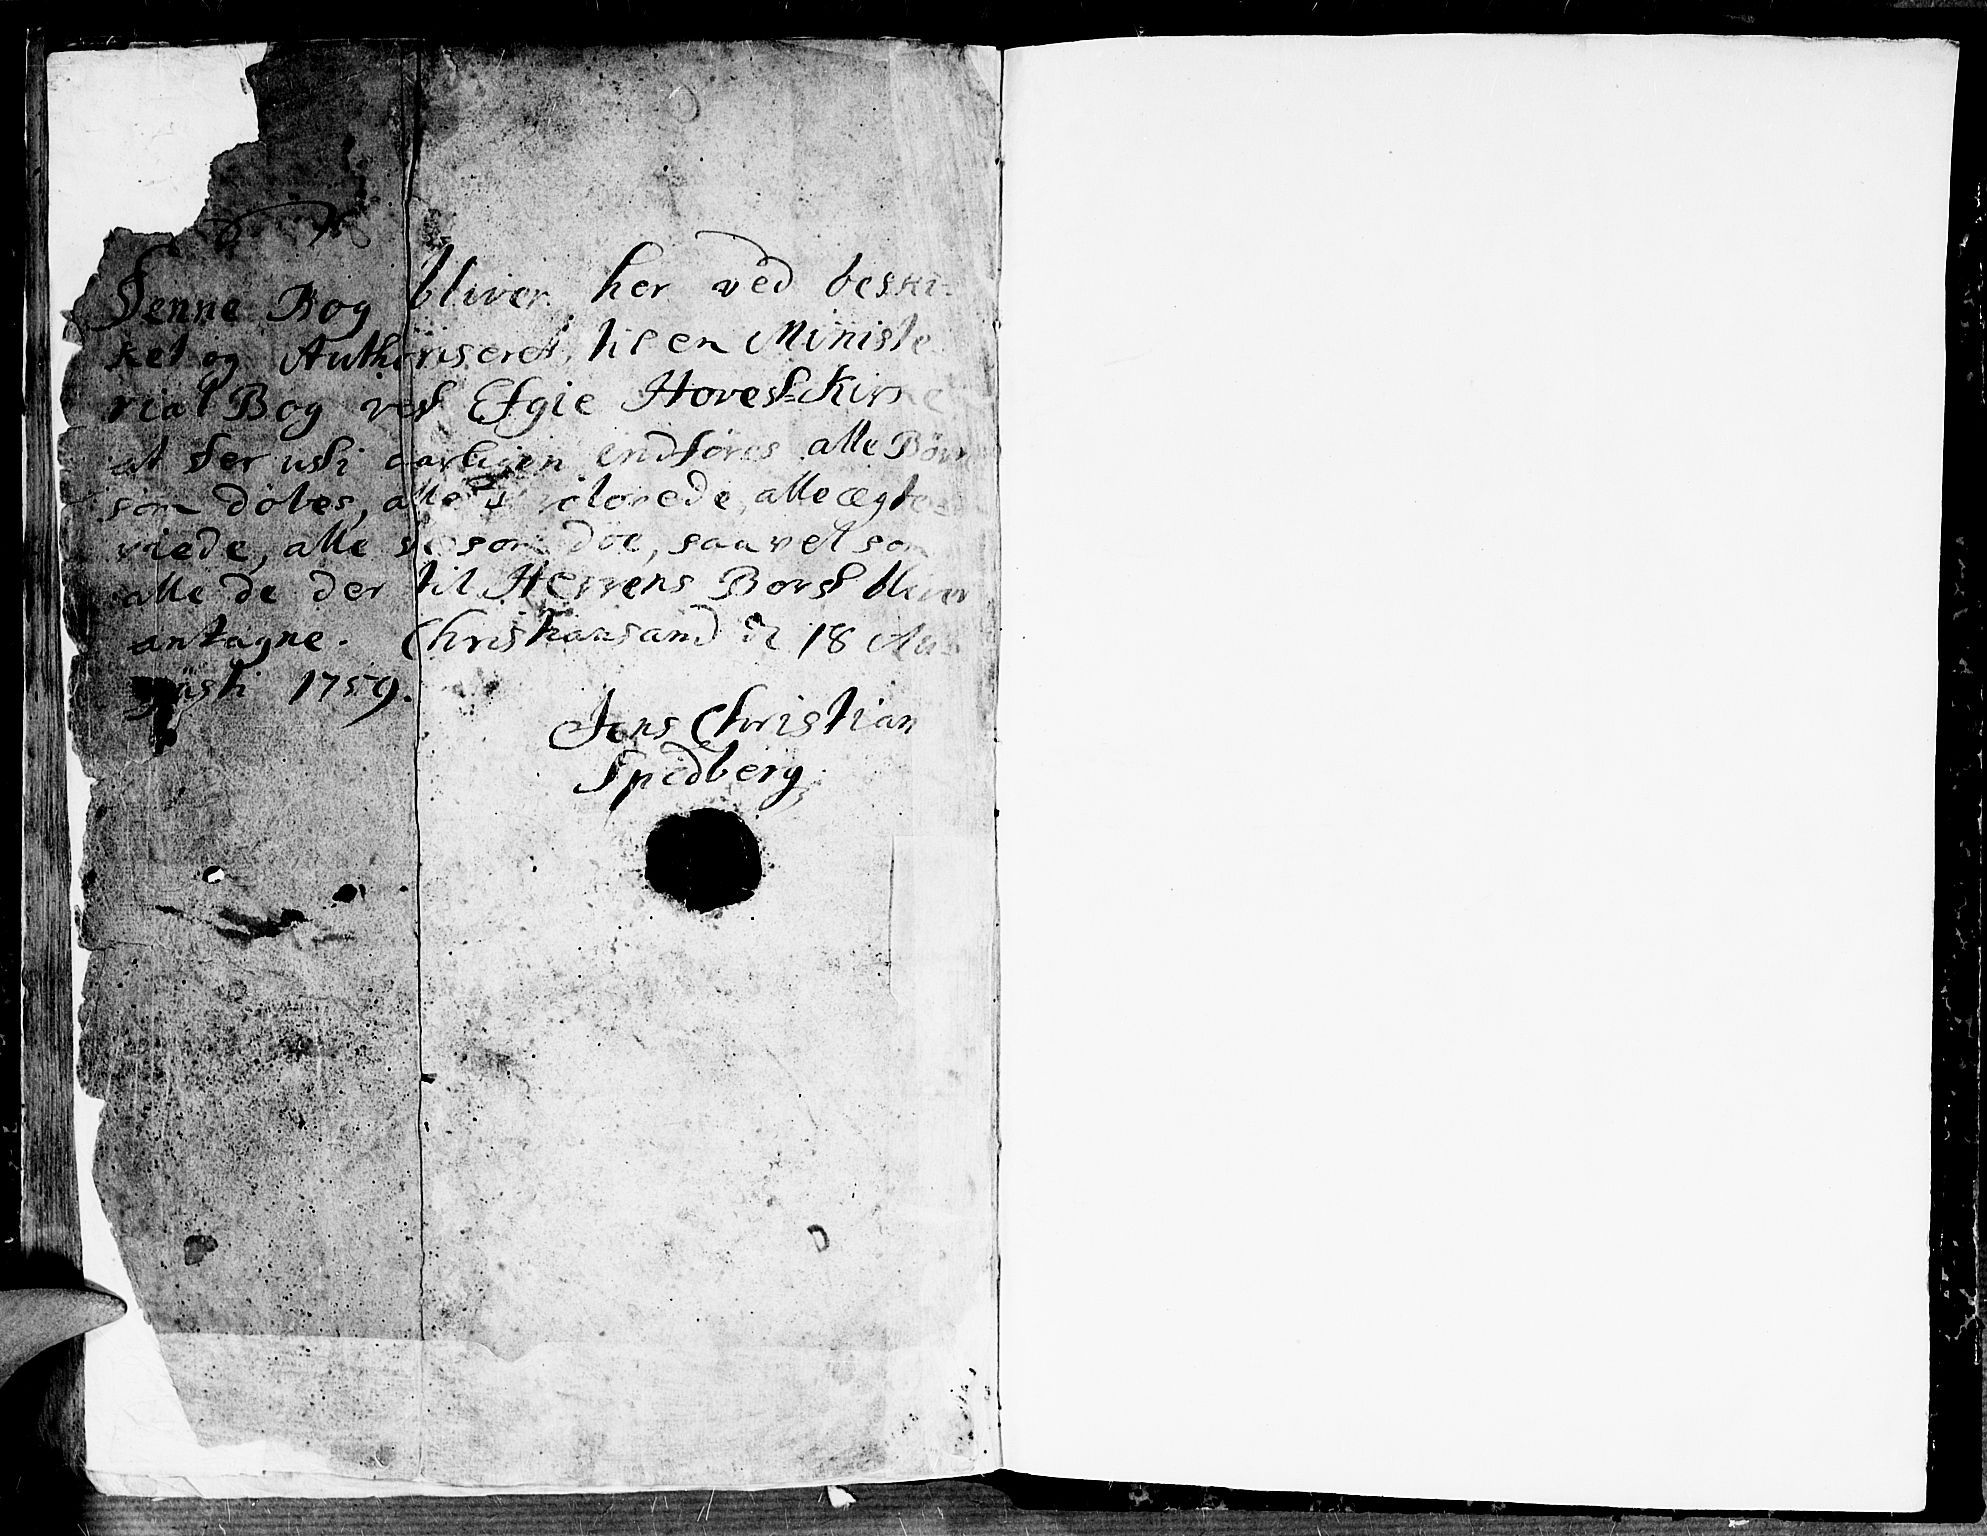 Denne Bog bliver her ved beski-
ket og Authoriseret, til en Ministe-
rial Bog ved Efgie Hoved-Kirke
at der udi aarligen indføres alle Børn
som döbes, alle trolovede, alle ægte
viede, alle de som döe, saavel som
alle de der til Herrens Bord bliver
antagne. Christiansand d 18 Au-
gusti 1759.
Jens Christian
Spidberg